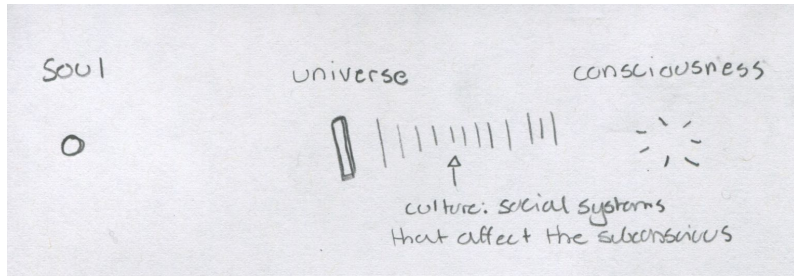 soul
universe
consciousness
culture: social systems
that affect the subconscious